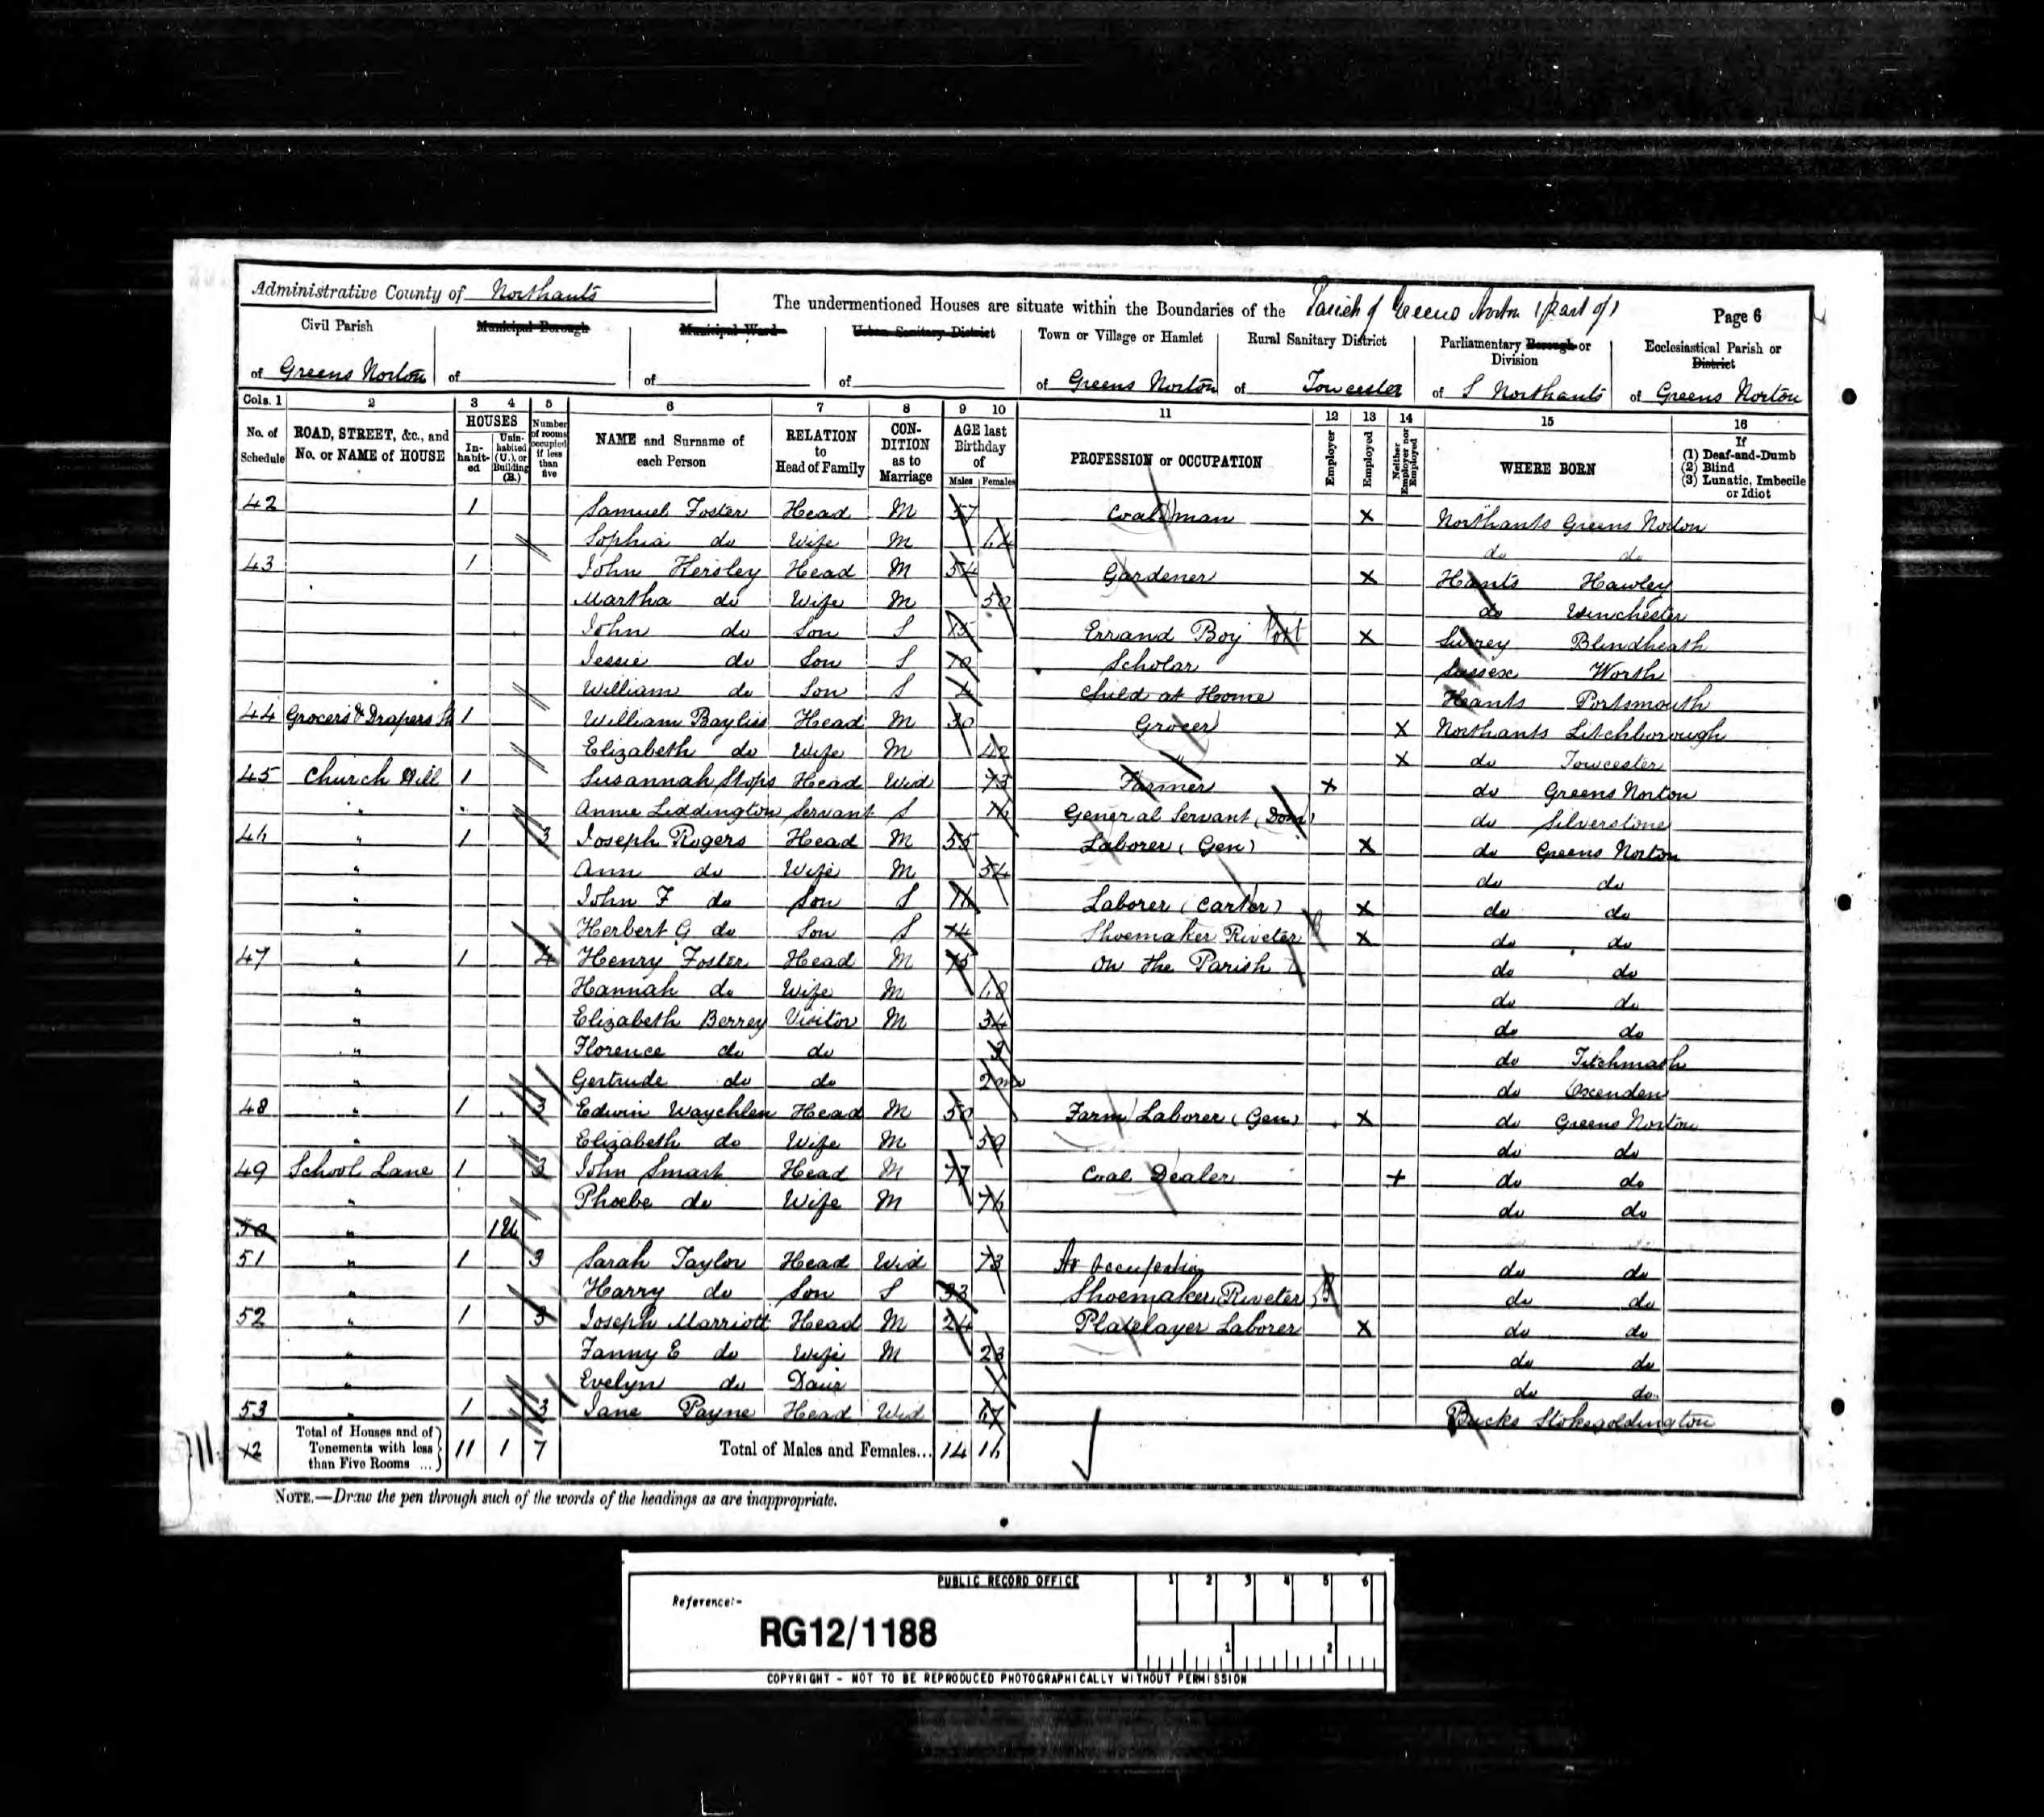 Administrative County of Northants
The undermentioned Houses are situate within the Boundaries of the Parish of Greens Norton (part of)
Page 6
Civil Parish of Greens Norton
Municipal Borough of
Municipal Ward of
Urban Sanitary District of
Town or Village or Hamlet of Greens Norton
Rural Sanitary District of Towcester
Parliamentary Borough or Division of S Northants
Ecclesiastical Parish or District of Greens Norton
Cols. 1 2 3 4 5 6 7 8 9 10 11 12 13 14 15 16
No. of Schedule
ROAD, STREET, &c., and No. or NAME of HOUSE
HOUSES
In-habit-ed
Unin-habited (U.), or Building (B.)
Number of rooms occupied if less than five
NAME and Surname of each Person
RELATION to Head of Family
CON-DITION as to Marriage
AGE last Birthday of
Males Females
PROFESSION or OCCUPATION
Employer
Employed
Neither Employer nor Employed
WHERE BORN
If
(1) Deaf-and-Dumb
(2) Blind
(3) Lunatic, Imbecile or Idiot
42 1 Samuel Foster Head M 57 Coalman X Northants Greens Norton
Sophia do Wife M do do
43 1 John Hersley Head M 54 Gardener X Hants Hawley
Martha do Wife M 50 do Winchester
John do Son S 15 Errand Boy Port X Surrey Blindheath
Jessie do Son S 10 Scholar Sussex Worth
William do Son S 4 Child at Home Hants Portsmouth
44 Grocers & Drapers Sh 1 William Bayliss Head M 30 Grocer X Northants Litchborough
Elizabeth do Wife M 42 " X do Towcester
45 Church Hill 1 Susannah Stops Head Wid 73 Farmer X do Greens Norton
" Annie Liddington Servant S 16 General Servant (Dom) do Silverstone
46 " 1 3 Joseph Rogers Head M 55 Laborer (Gen) X do Greens Norton
" Ann do Wife M 54 do do
" John F do Son S Laborer (Carter) X do do
" Herbert G do Son S 14 Shoemaker Riveter X do do
47 " 1 4 Henry Foster Head M 75 On the Parish do do
" Hannah do Wife M 68 do do
" Elizabeth Berrey Visitor M 34 do do
" Florence do do do Titchmarsh
" Gertrude do do 2 mo do Oxenden
48 " 1 3 Edwin Waychlen Head M 50 Farm Laborer (Gen) X do Greens Norton
" Elizabeth do Wife M 50 do do
49 School Lane 1 3 John Smart Head M 77 Coal Dealer + do do
" Phoebe do Wife M 76 do do
50 " 1U
51 " 1 3 Sarah Taylor Head Wid 73 No Occupation do do
" Harry do Son S 33 Shoemaker Riveter do do
52 " 1 3 Joseph Marriott Head M 24 Platelayer Laborer X do do
" Fanny E do Wife M 23 do do
" Evelyn do Daur 1 do do
53 " 1 3 Jane Payne Head Wid 67 Bucks Stokegoldington
12 Total of Houses and of Tenements with less than Five Rooms ... 11 1 7 Total of Males and Females... 14 16
NOTE.—Draw the pen through such of the words of the headings as are inappropriate.
PUBLIC RECORD OFFICE
1 2 3 4 5 6
Reference:-
RG12/1188
1 2
COPYRIGHT - NOT TO BE REPRODUCED PHOTOGRAPHICALLY WITHOUT PERMISSION